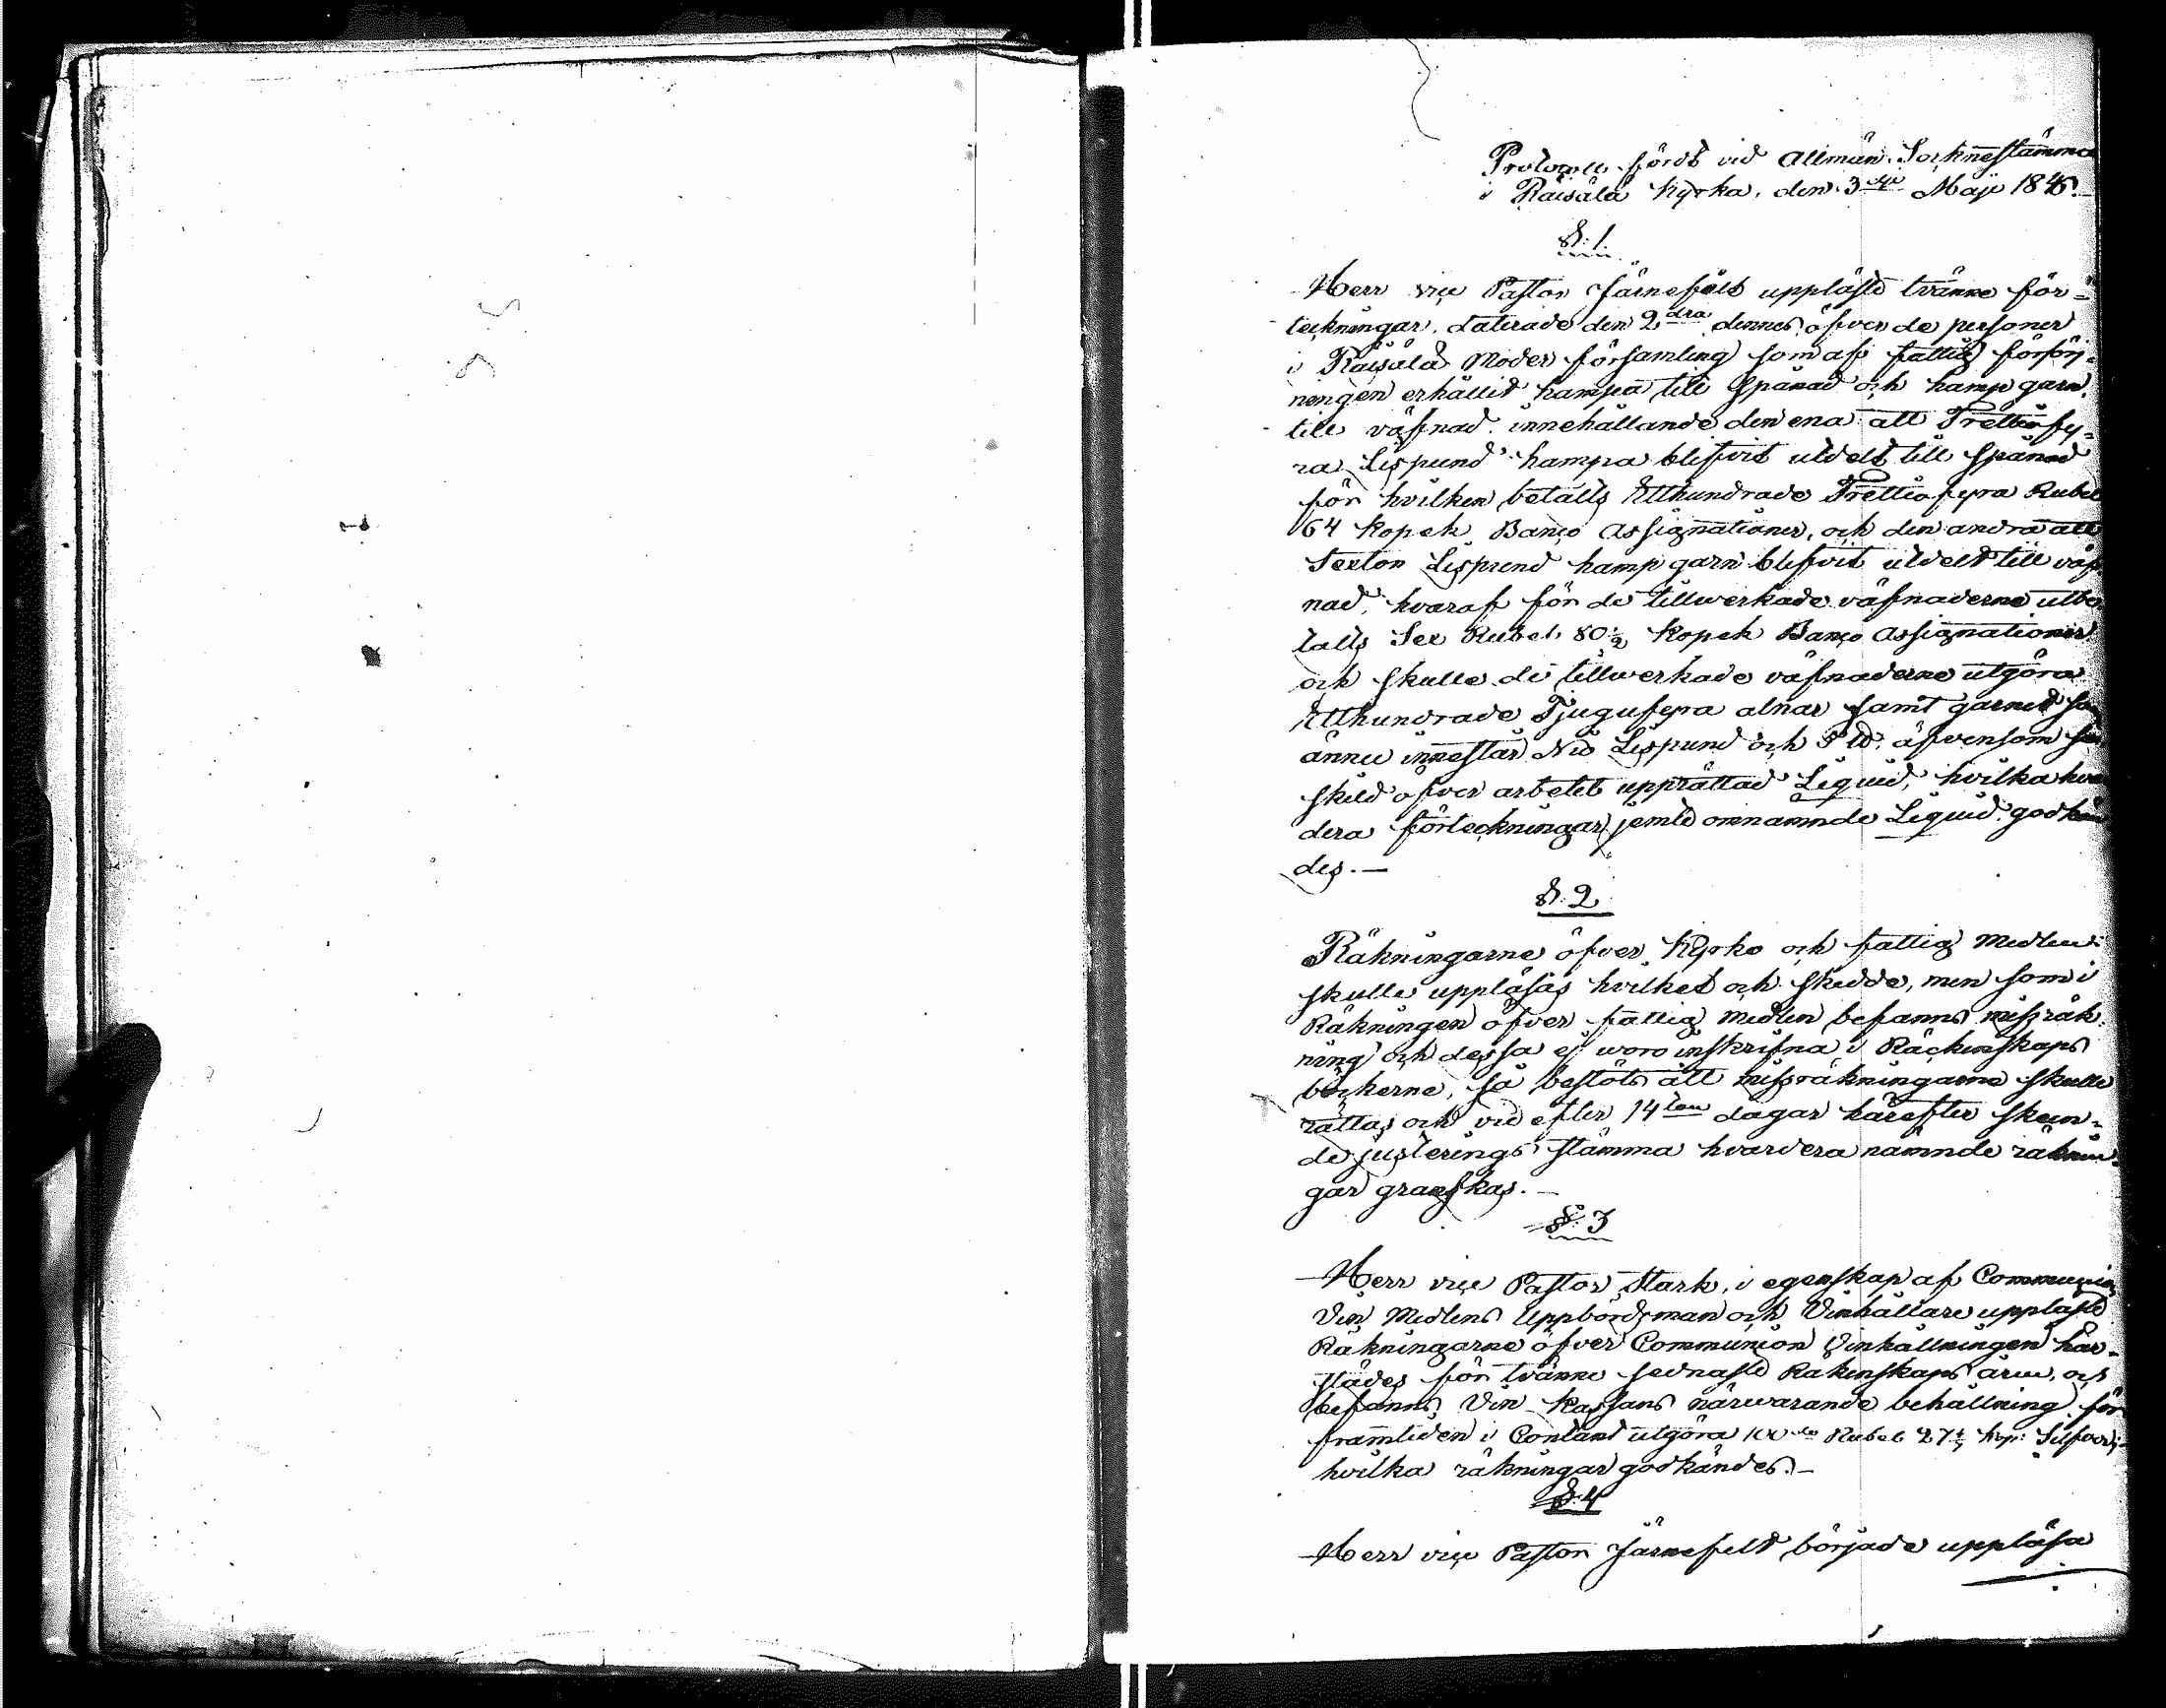 Protocoll fördt vid Allmän Socknestämma
i Räisälä Kyrka, den 3dje Maji 1846.
§. 1.
Herr vice Pastor Järnefelt uppläste tvänne för=
teckningar, daterade den 2dra dennes, öfver de personer
i Räisälä Moder församling som af fattig försörj-
ningen erhållit hampa till spånad och hamp garn
till väfnad, innehållande den ena att Trettiofy=
ra Lispund hampa blifvit utdelt till spånad
för hvilken betalts Etthundrade Trettiofyra Rubel
64 Kopek Banco Assignationer, och den andra att
Sexton Lispund hamp garn blifvit utdelt till väf
nad, hvaraf för de tillwerkade väfnaderne utbe
talts Sex Rubel 80½ Kopek Banco Assignationer
och skulle de tillwerkade väfnaderne utgöra
Etthundrade Tjugufyra alnar samt garnet som
ännu innestår Nio Lispund och 5 ℔. äfvensom sär
skild öfver arbetet upprättad Liquid, hvilka hvar
dera förteckningar jemte omnämnde Liquid godkän
des.—
§. 2
Räkningarne öfver Kyrko och fattig Medlen
skulle uppläsas hvilket och skedde, men som i
Räkningen öfver fattig medlen befanns missräk
ning och dessa ej woro inskrifna i Räckenskaps
böckerne, så beslöts att missräkningarne skulle
rättas och vid efter 14ton dagar härefter skeen=
de justerings stämma hvardera nämnde räknin
gar granskas.—
§. 3
Herr vice Pastor Stark, i egenskap af Communion
Vin Medlens Uppbördsman och Vinhållare uppläste
Räkningarne öfver Communion Vinhållningen här-
städes för tvänne sednaste Räkenskaps åren, och
befanns Vin Kassans närwarande behållning för
framtiden i Contant utgöra 100de Rubel 27 1/7 kop: Silfver,
hvilka räkningar godkändes.—
§. 4
Herr vice Pastor Järnefelt började uppläsa